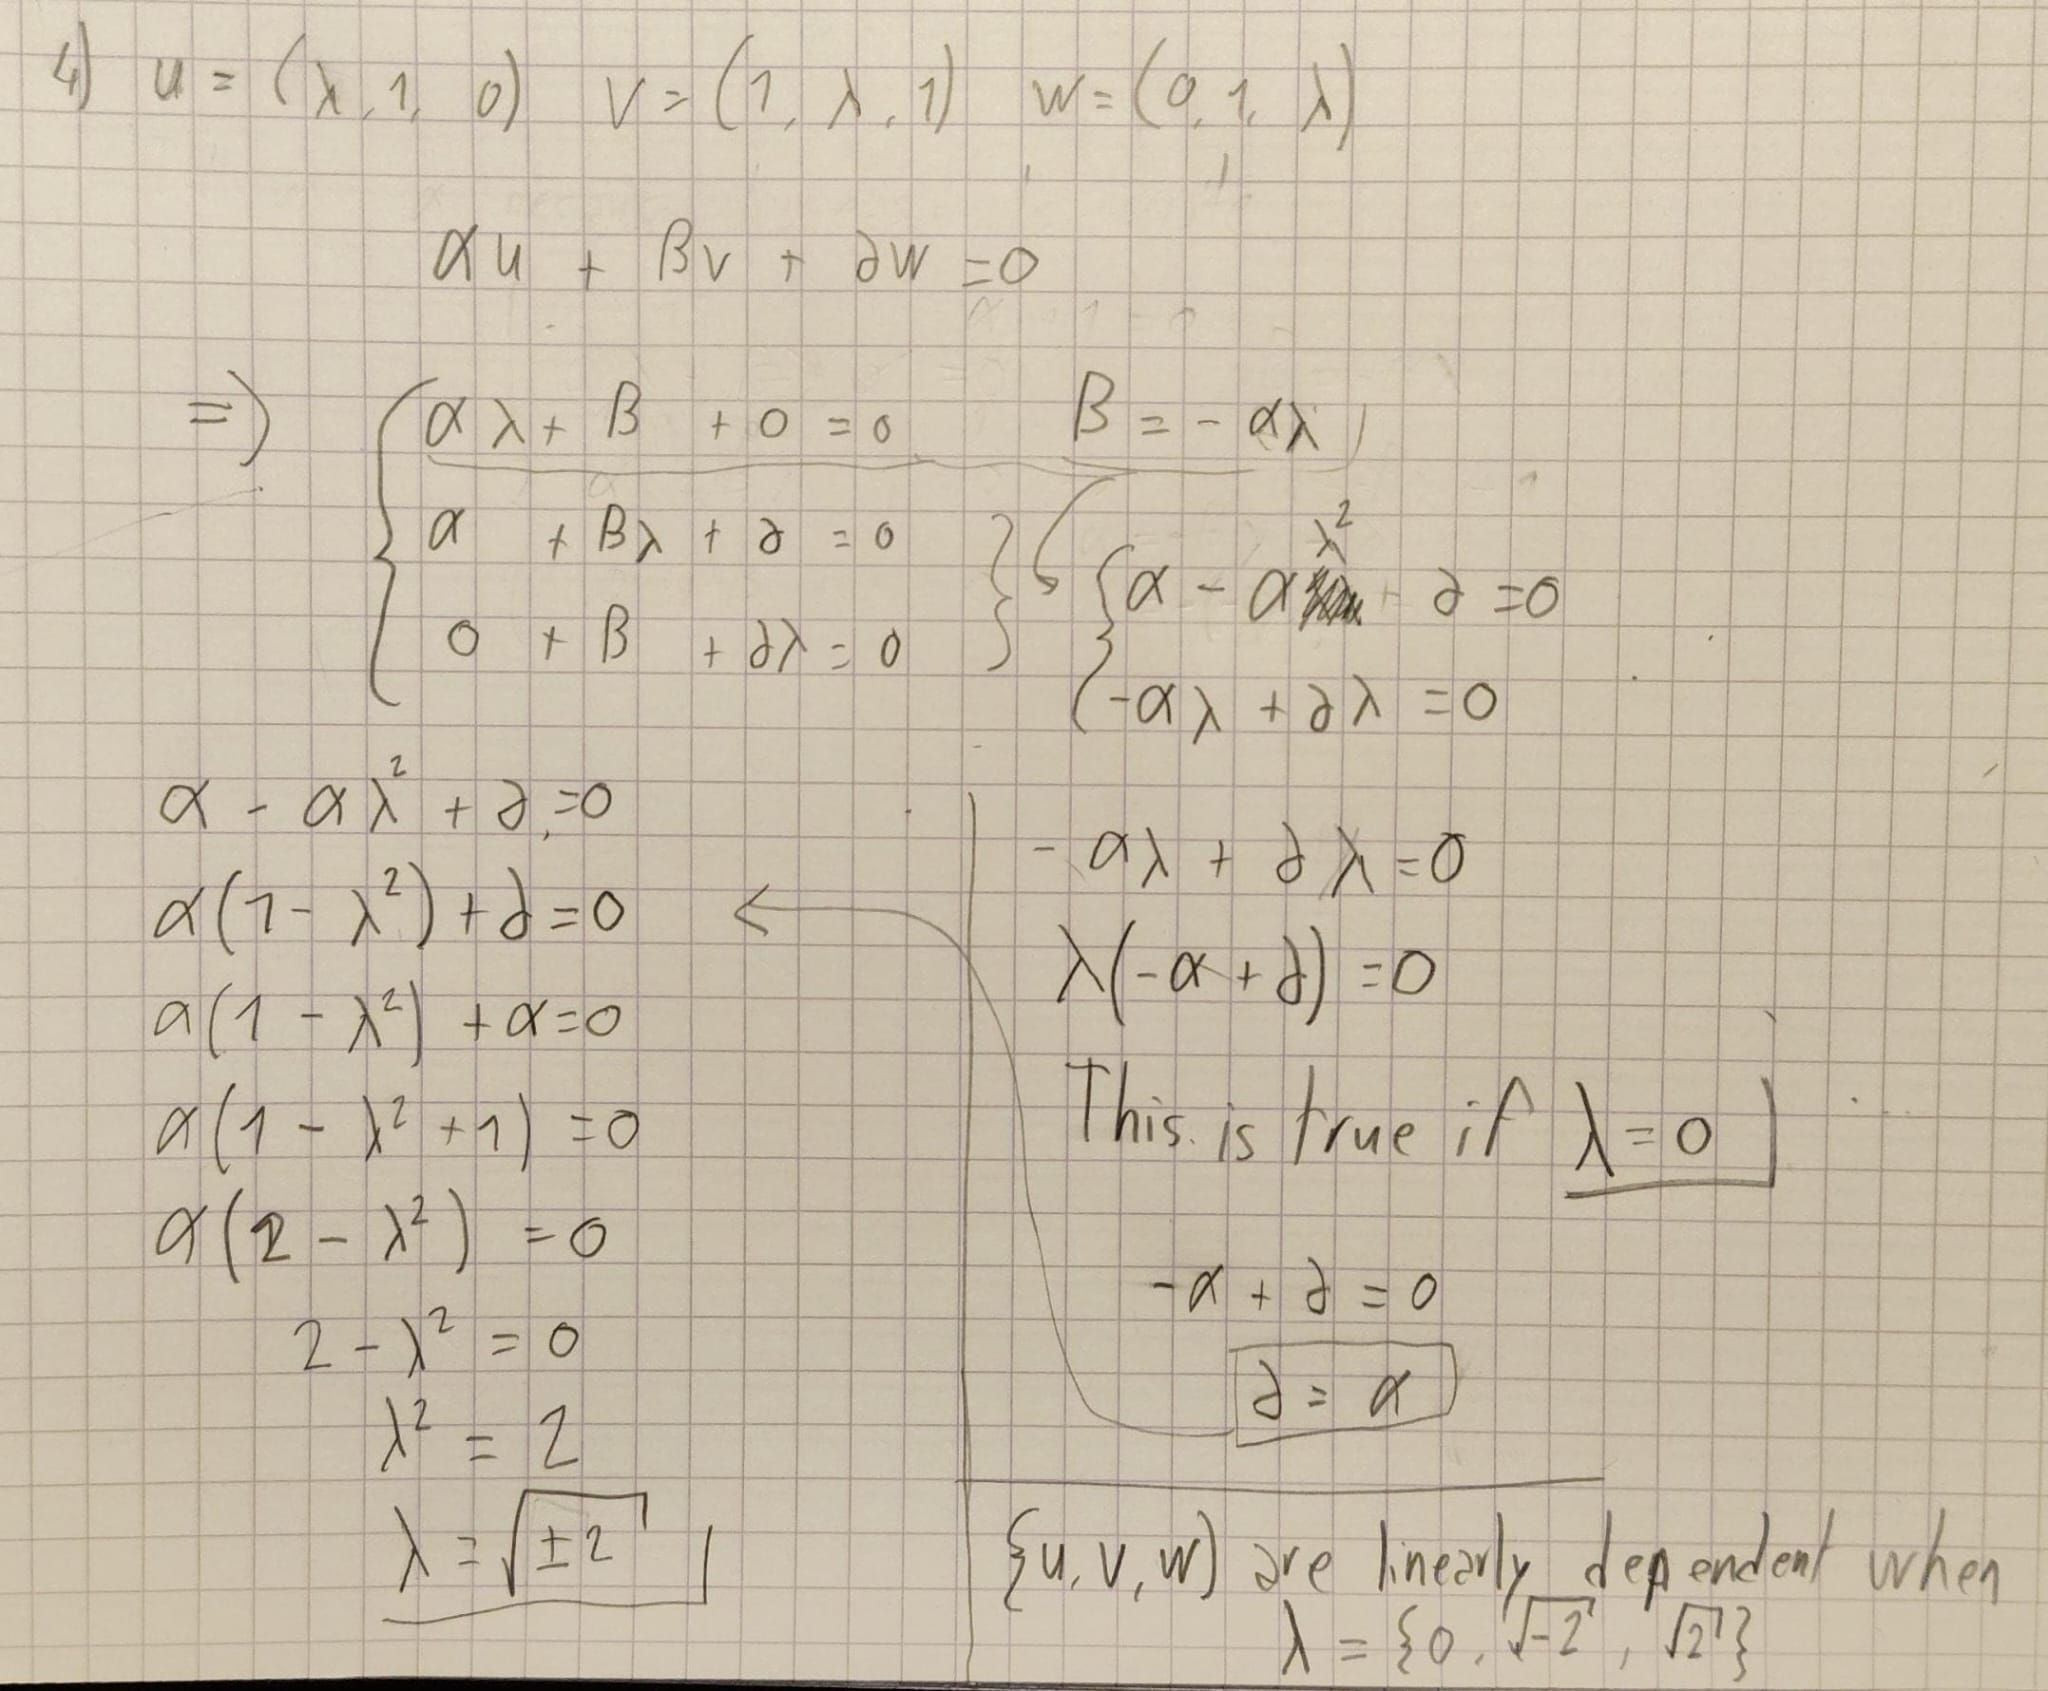 4) u = (λ, 1, 0) v = (1, λ, 1) w = (0, 1, λ)
αu + βv + ∂w = 0
=> { αλ + β + 0 = 0 β = -αλ
α + βλ + ∂ = 0
{ α - αλ² + ∂ = 0
0 + β + ∂λ = 0 }
-αλ + ∂λ = 0
α - αλ² + ∂ = 0
α(1 - λ²) + ∂ = 0
α(1 - λ²) + α = 0
α(1 - λ² + 1) = 0
α(2 - λ²) = 0
2 - λ² = 0
λ² = 2
λ = √±2
-αλ + ∂λ = 0
λ(-α + ∂) = 0
This is true if λ = 0
-α + ∂ = 0
∂ = α
{u, v, w} are linearly dependent when
λ = {0, √-2, √2}